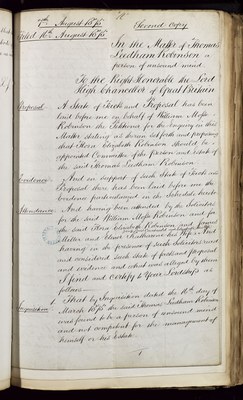 7th August 1875
Second Copy
Filed 16th August 1875
In the Matter of Thomas
Leedham Robinson a
person of unsound mind
To the Right Honorable the Lord
High Chancellor of Great Britain
Proposal
A State of Facts and Proposal has been
laid before me on behalf of William Moss
Robinson the Petitioner for the Inquiry in this
Matter stating as therein set forth and proposing
that Flora Elizabeth Robinson should be
appointed Committee of the Person and Estate of
the said Thomas Leedham Robinson
Evidence
And in support of such State of Facts and
Proposal there has been laid before me the
evidence particularized in the Schedule hereto
Attendances
And having been attended by the Solicitors
for the said William Moss Robinson and for
the said Flora Elizabeth Robinson and
and
having in the presence of such Solicitors read
and considered such State of facts and proposal
and evidence and what was alleged by them
I find and Certify to Your Lordship as
follows
Inquisition
1 That by Inquisition dated the 16th day of
March 1875 the said Thomas Leedham Robinson
was found to be a person of unsound mind
and not competent for the management of
himself or his Estate